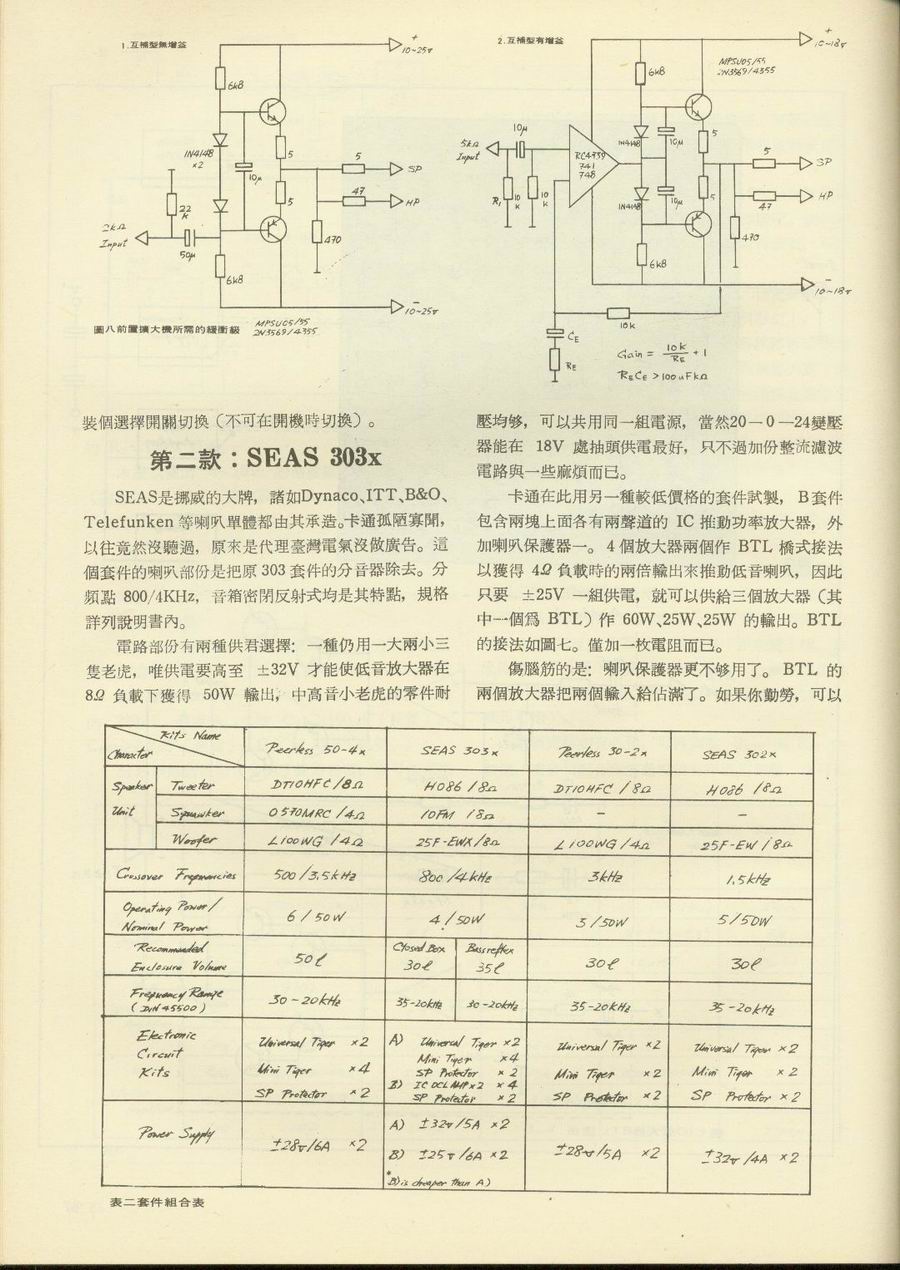 1.互補型無增益
+
10~25v
6k8
1N4148
×2
10μ
5
5
5
SP
47
HP
22
k
2kΩ
Input
50μ
470
6k8
-
10~25v
圖八前置擴大機所需的緩衝級
MPSU05/55
2N3569/4355
2.互補型有增益
+
10~18v
MPSU05/55
2N3569/4355
6k8
5kΩ
Input
10μ
RC4739
741
748
1N4148
10μ
5
5
SP
R1
10
k
10
k
1N4148
10μ
5
47
HP
470
6k8
-
10~18v
10k
CE
RE
Gain = 10k/RE + 1
RECE > 100uFkΩ
裝個選擇開關切換（不可在開機時切換）。
第二款：SEAS 303x
SEAS是挪威的大牌，諸如Dynaco、ITT、B&O、
Telefunken 等喇叭單體都由其承造。卡通孤陋寡聞，
以往竟然沒聽過，原來是代理臺灣電氣沒做廣告。這
個套件的喇叭部份是把原 303 套件的分音器除去。分
頻點 800/4KHz，音箱密閉反射式均是其特點，規格
詳列說明書內。
電路部份有兩種供君選擇：一種仍用一大兩小三
隻老虎，唯供電要高至 ±32V 才能使低音放大器在
8Ω 負載下獲得 50W 輸出，中高音小老虎的零件耐
壓均够，可以共用同一組電源，當然20－0－24變壓
器能在 18V 處抽頭供電最好，只不過加份整流濾波
電路與一些麻煩而已。
卡通在此用另一種較低價格的套件試製，B套件
包含兩塊上面各有兩聲道的 IC 推動功率放大器，外
加喇叭保護器一。4 個放大器兩個作 BTL 橋式接法
以獲得 4Ω 負載時的兩倍輸出來推動低音喇叭，因此
只要 ±25V 一組供電，就可以供給三個放大器（其
中一個爲 BTL）作 60W、25W、25W 的輸出。BTL
的接法如圖七。僅加一枚電阻而已。
傷腦筋的是：喇叭保護器更不够用了。BTL 的
兩個放大器把兩個輸入給佔滿了。如果你勤勞，可以
Kits Name
Character
Peerless 50-4x
SEAS 303x
Peerless 30-2x
SEAS 302x
Speaker
Unit
Tweeter
DT10HFC/8Ω
H086/8Ω
DT10HFC/8Ω
H086/8Ω
Squawker
0570MRC/4Ω
10FM/8Ω
-
-
Woofer
L100WG/4Ω
25F-EWX/8Ω
L100WG/4Ω
25F-EW/8Ω
Crossover Frequencies
500/3.5kHz
800/4kHz
3kHz
1.5kHz
Operating Power/
Nominal Power
6/50W
4/50W
3/50W
5/50W
Recommended
Enclosure Volume
50ℓ
Closed Box
30ℓ
Bassreflex
35ℓ
30ℓ
30ℓ
Frequency Range
(DIN 45500)
30-20kHz
35-20kHz
30-20kHz
35-20kHz
35-20kHz
Electronic
Circuit
Kits
Universal Tiger ×2
Mini Tiger ×4
SP Protector ×2
A) Universal Tiger ×2
Mini Tiger ×4
SP Protector ×2
B) IC OCL AMP×2 ×4
SP Protector ×2
Universal Tiger ×2
Mini Tiger ×2
SP Protector ×2
Universal Tiger ×2
Mini Tiger ×2
SP Protector ×2
Power Supply
±28v/6A ×2
A) ±32v/5A ×2
B) ±25v/6A ×2
*B) is cheaper than A)
±28v/5A ×2
±32v/4A ×2
表二套件組合表